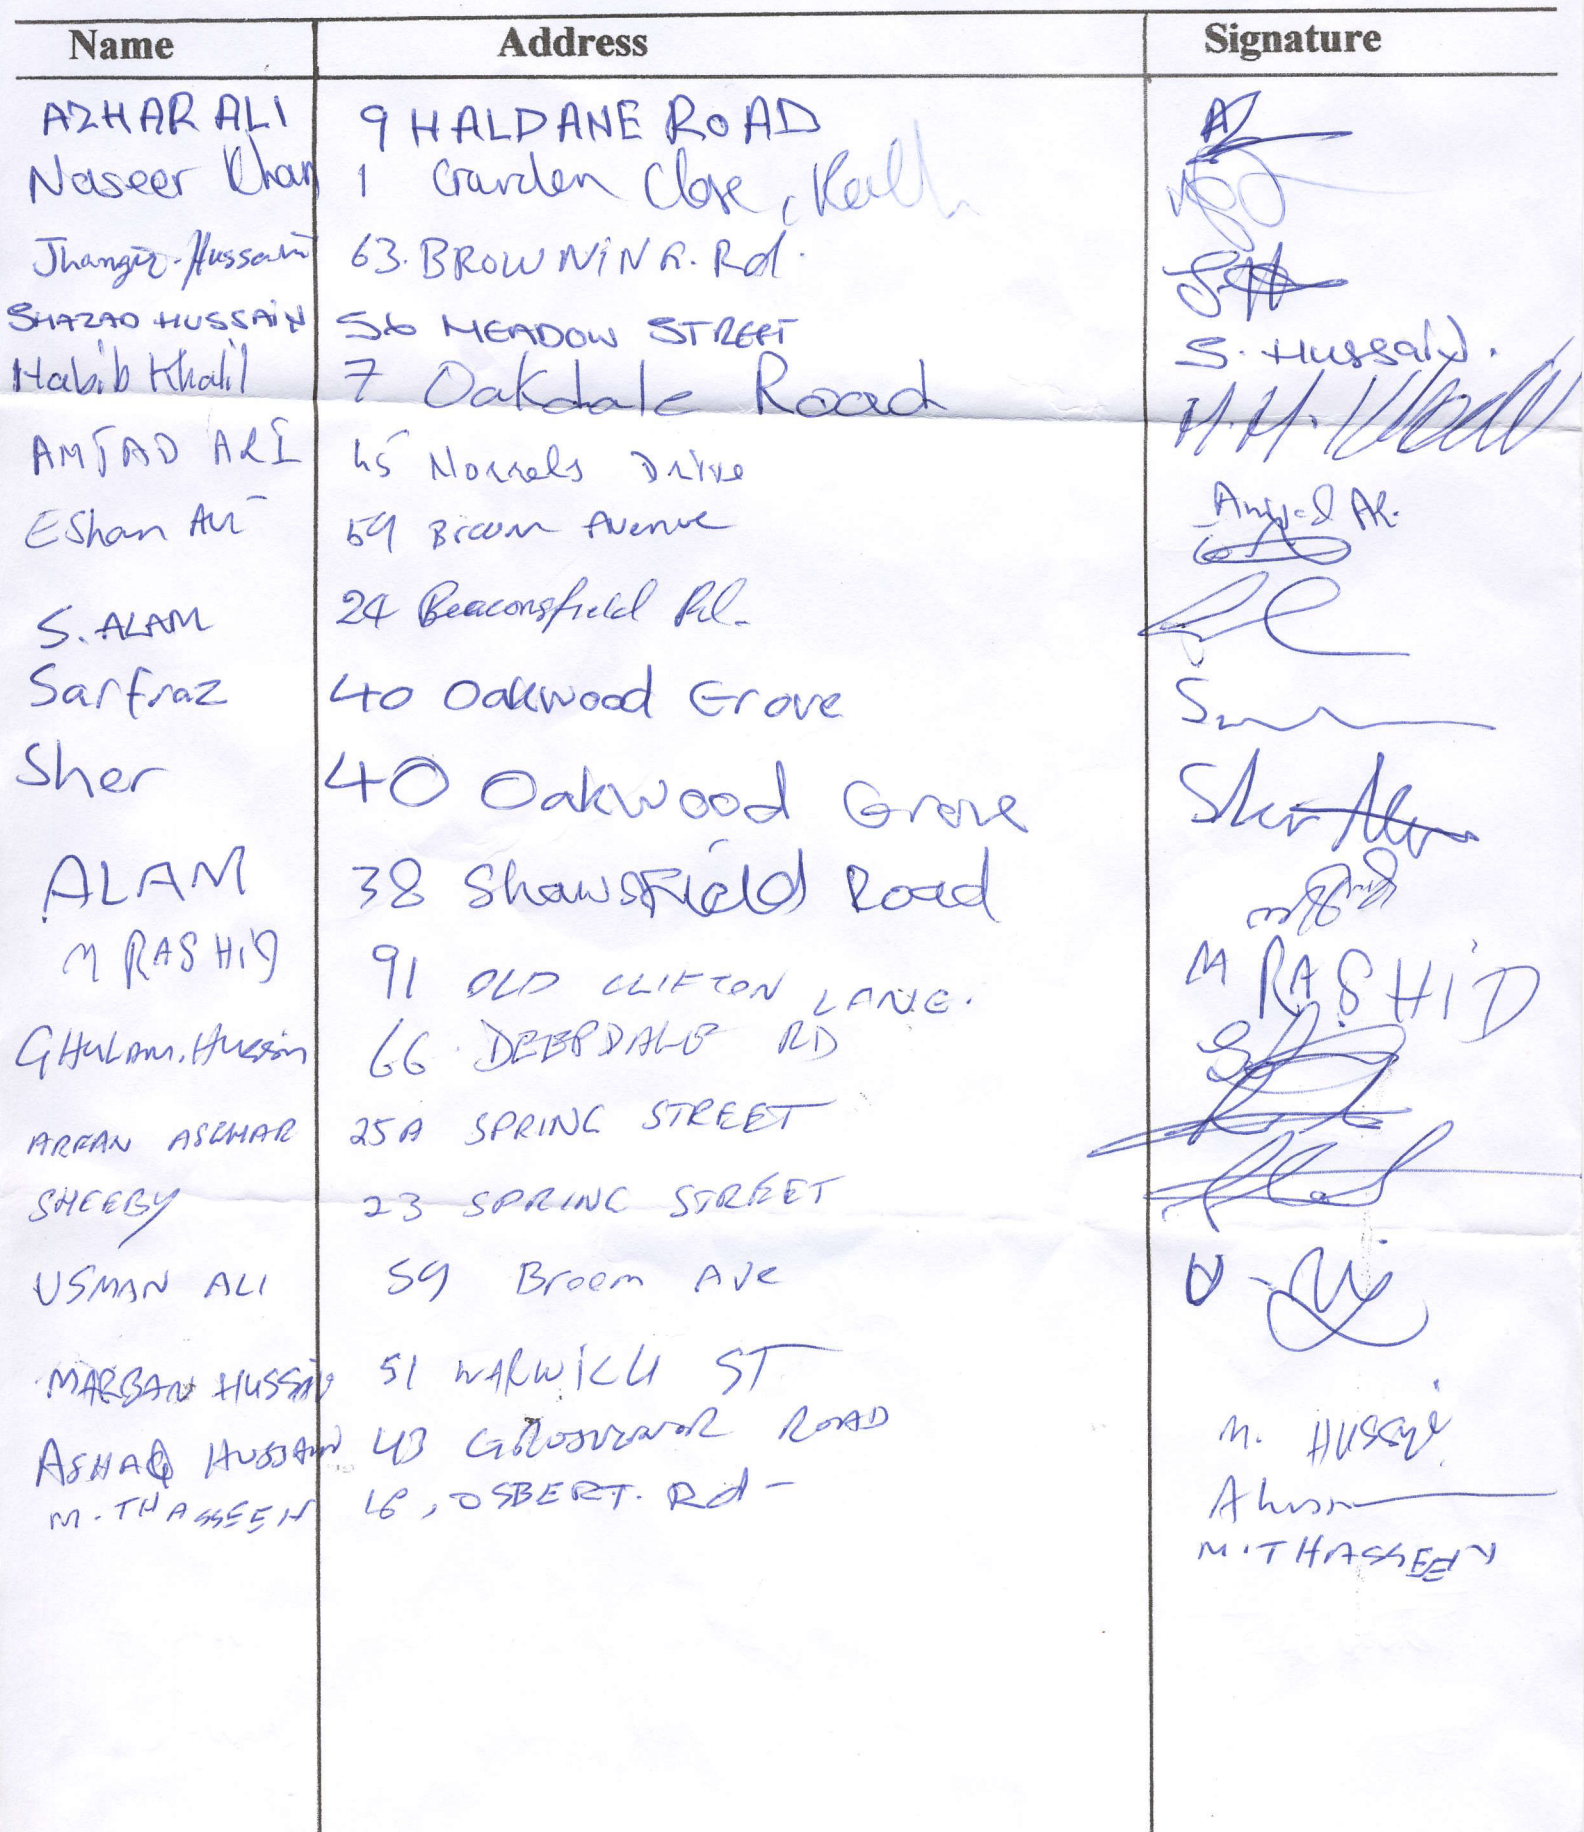 Name Address Signature
AZHAR ALI 9 HALDANE ROAD
Naseer Khan 1 Garden Close,
Jhangir. Hussain 63. BROWNING. Rd.
SHAZAD HUSSAIN 56 MEADOW STREET S. Hussain.
Habib Khalil 7 Oakdale Road M. H.
AMJAD ALI 45 Morrels Drive Amjad Ali.
EShan Ali 59 Broom Avenue
S. ALAM 24 Beaconsfield Rd.
Sarfraz 40 Oakwood Grove
Sher 40 Oakwood Grove Sher
ALAM 38 Shawsfield Road
M RASHID 91 OLD CLIFTON LANE. M RASHID
GHULAM. Hussain 66 DEEPDALE RD
ARFAN ASGHAR 25A SPRING STREET
SHEEBY 23 SPRING STREET
USMAN ALI 59 Broom Ave
MARBAN HUSSAIN 51 WARWICK ST M. HUSSAIN
ASHAQ HUSSAIN 43 GROSVENOR ROAD
M. THASSEEN 16, OSBERT. Rd- M. THASSEEN